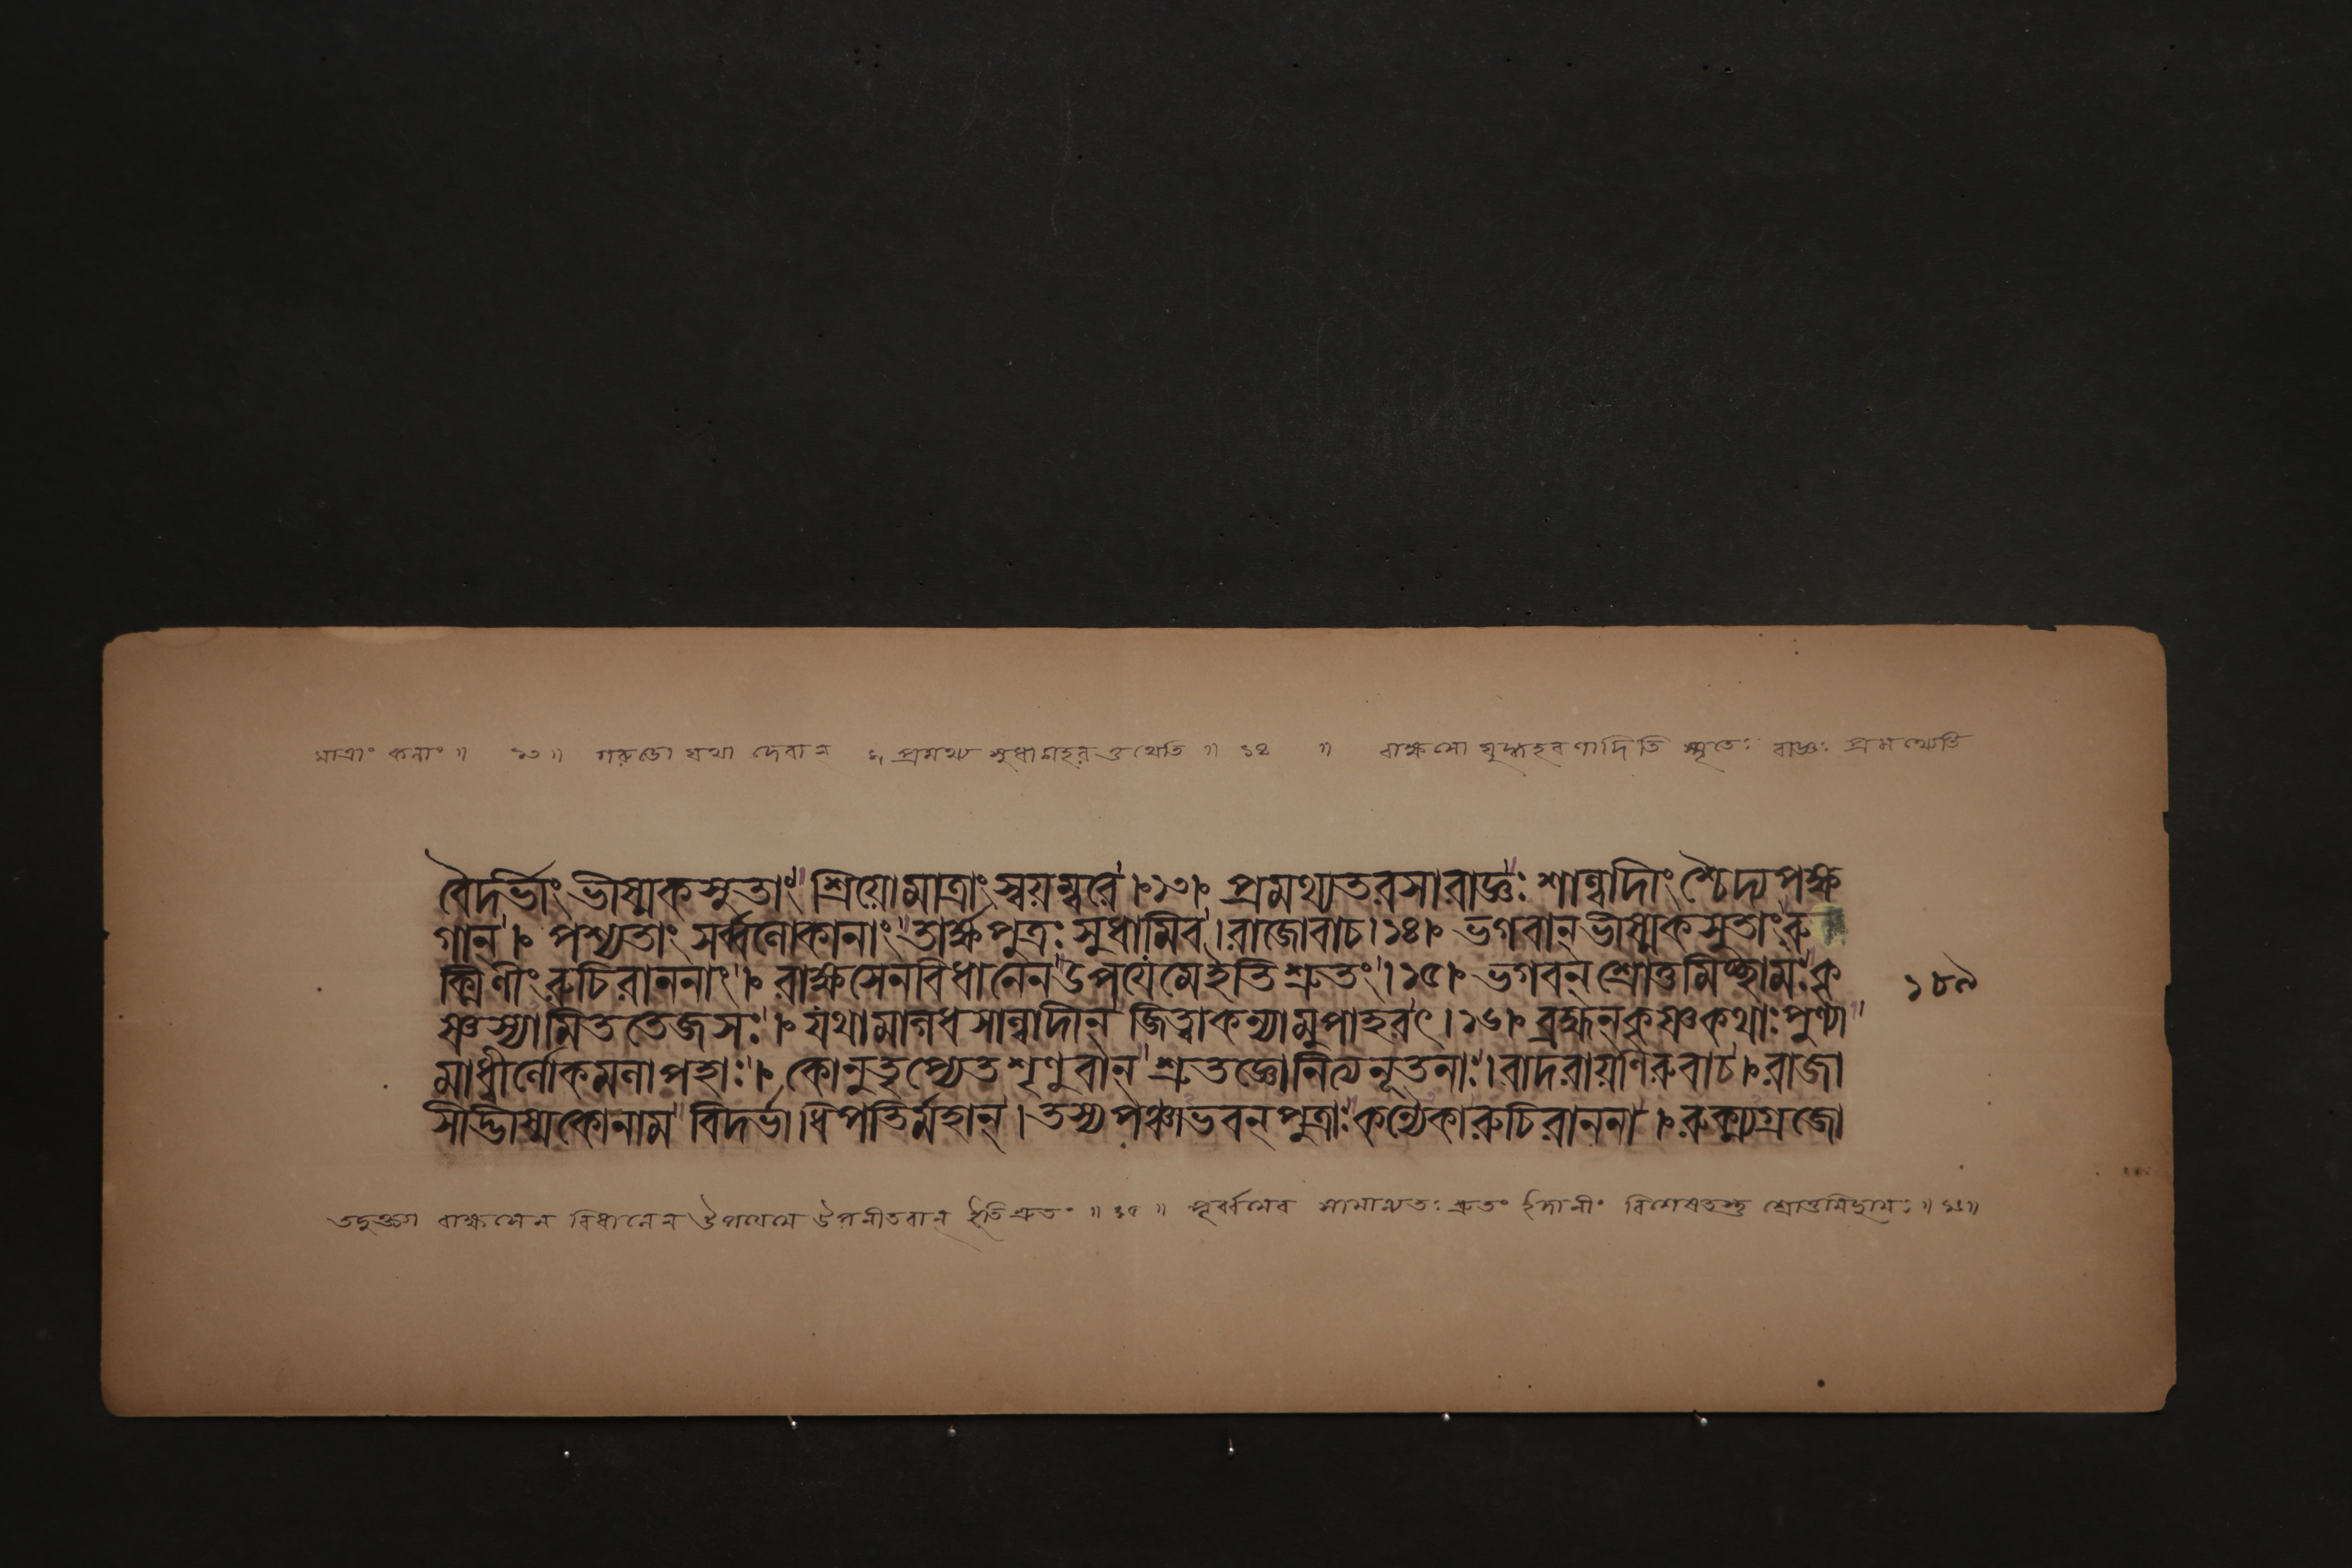 মাত্রাং কলাং ॥ ১৩ ॥ গরুডো যথা দেবান্ প্রমথ্য সুধামহরত্তথেতি ॥ ১৪ ॥ রাক্ষসো যুদ্ধহরণাদিতি স্মৃতেঃ রাজ্ঞঃ প্রমথ্যেতি
বৈদর্ভীং ভীষ্মকসুতাং শ্রিয়োমাত্রাং স্বয়ম্বরে ।১৩। প্রমথ্যতরসারাজ্ঞঃ শাল্বাদীং শ্চৈদ্যপক্ষ
গান্ । পশ্যতাং সর্ব্বলোকানাং তার্ক্ষ্যপুত্রঃ সুধামিব । রাজোবাচ ।১৪। ভগবান্ ভীষ্মকসুতাং রু
ক্মিণীং রুচিরাননাং । রাক্ষসেনবিধানেন উপযেমেইতিশ্রুতং ।১৫। ভগবন্ শ্রোতুমিচ্ছামঃ কৃ
ষ্ণস্যামিততেজসঃ । যথামাগধসাল্বাদীন্ জিত্বাকন্যামুপাহরৎ ।১৬। ব্রহ্মন্ কৃষ্ণকথাঃ পুণ্যা
মাধ্বীর্লোকমলাপহাঃ । কোনুতৃপ্যেতশৃণুবান্ শ্রুতজ্ঞোনিত্যনূতনাঃ । বাদরায়ণিরুবাচ । রাজা
সীদ্ভীষ্মকোনাম বিদর্ভাধিপতির্মহান্ । তস্যপঞ্চাভবন্ পুত্রাঃ কন্যৈকারুচিরাননা । রুক্ম্যগ্রজো
১৮৯
রাক্ষসেন বিধানেন উপযেমে উপনীতবান্ ইতিশ্রুতং ॥ ১৫ ॥ পূর্ব্বমেব সামান্যতঃ শ্রুতং ইদানীং বিশেষতস্তু শ্রোতুমিচ্ছামঃ ॥ ১৬ ॥